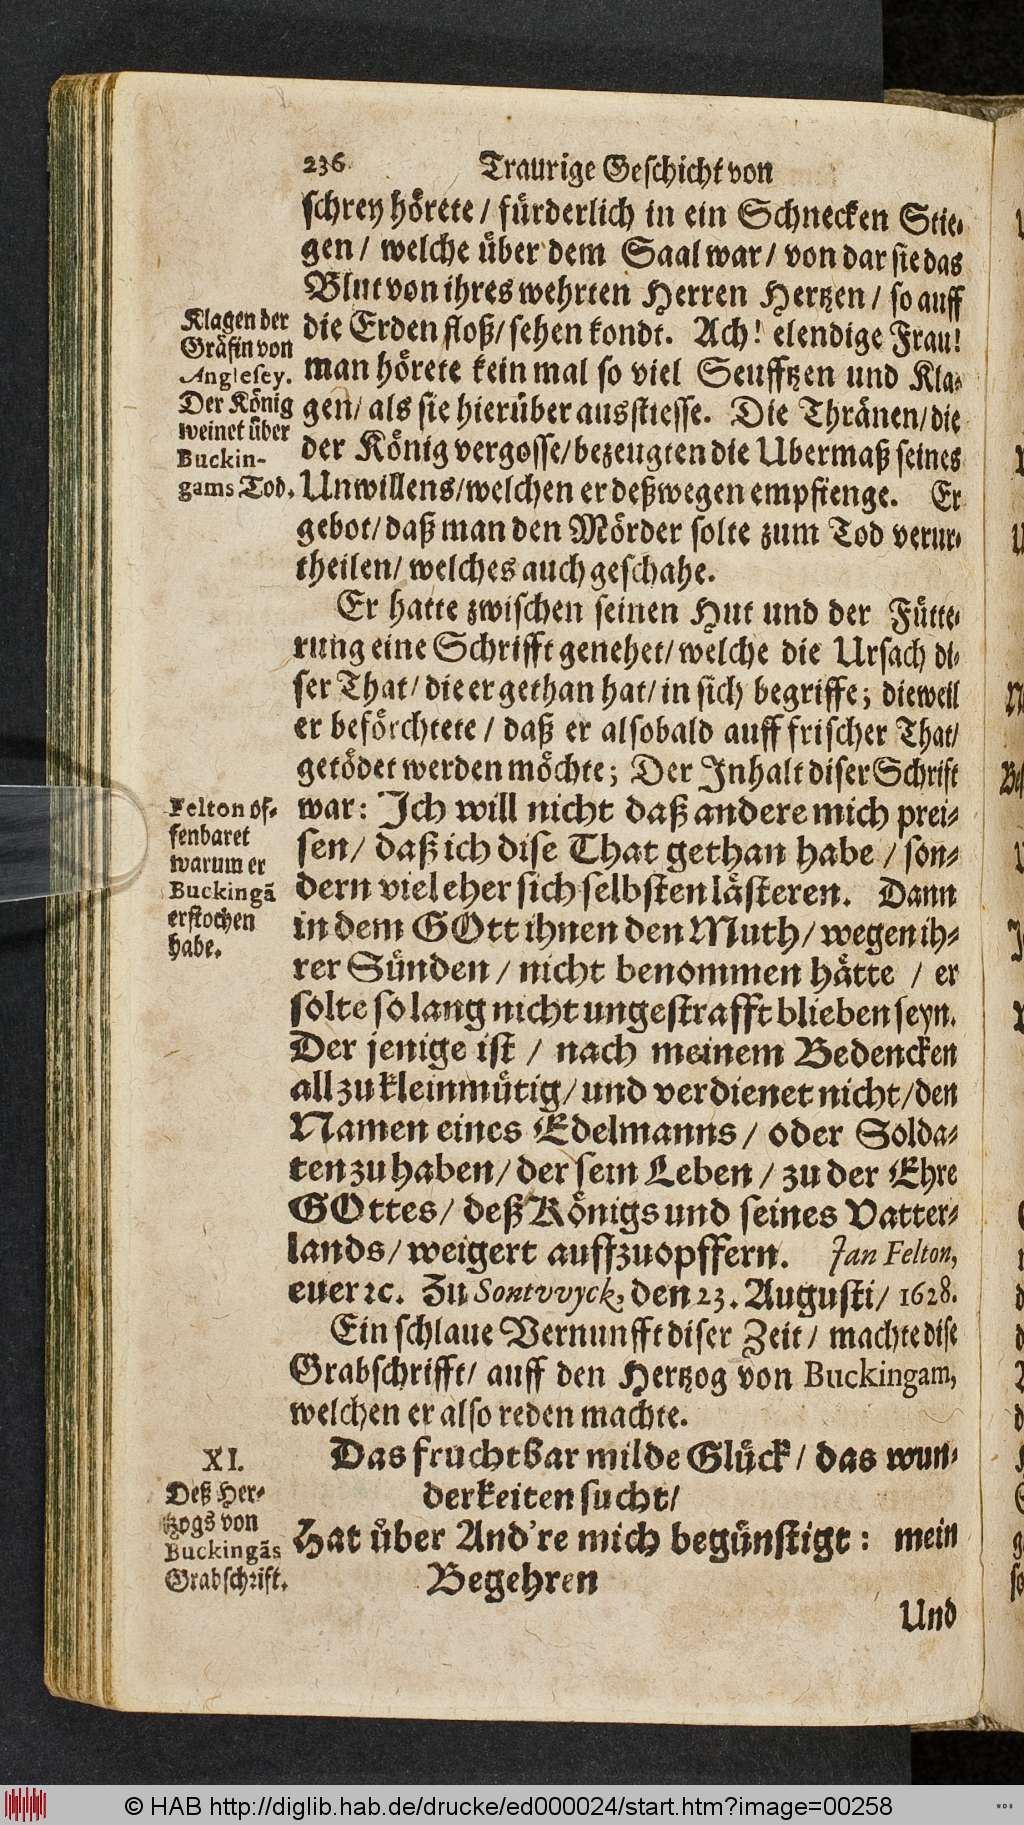 236 Traurige Geschicht von
schrey hörete / fürderlich in ein Schnecken Stie-
gen / welche über dem Saal war / von dar sie das
Blut von ihres wehrten Herren Hertzen / so auff
die Erden floß / sehen kondt. Ach! elendige Frau!
man hörete kein mal so viel Seufftzen und Kla-
gen / als sie hierüber ausstiesse. Die Thränen / die
der König vergosse / bezeugten die Ubermaß seines
Unwillens / welchen er deßwegen empfienge. Er
gebot / daß man den Mörder solte zum Tod verur-
theilen / welches auch geschahe.
Klagen der
Gräfin von
Anglesey.
Der König
weinet über
Buckin-
gams Tod.
Er hatte zwischen seinen Hut und der Fütte-
rung eine Schrifft genehet / welche die Ursach di-
ser That / die er gethan hat / in sich begriffe; dieweil
er beförchtete / daß er alsobald auff frischer That /
getödet werden möchte; Der Inhalt diser Schrift
war: Ich will nicht daß andere mich prei-
sen / daß ich dise That gethan habe / son-
dern viel eher sich selbsten lästeren. Dann
in dem GOtt ihnen den Muth / wegen ih-
rer Sünden / nicht benommen hätte / er
solte so lang nicht ungestrafft blieben seyn.
Der jenige ist / nach meinem Bedencken
all zu kleinmütig / und verdienet nicht / den
Namen eines Edelmanns / oder Solda-
ten zu haben / der sein Leben / zu der Ehre
GOttes / deß Königs und seines Vatter-
lands / weigert auffzuopffern. Jan Felton,
euer ꝛc. Zu Sontvvyck, den 23. Augusti / 1628.
Felton of-
fenbaret
warum er
Buckingã
erstochen
habe.
Ein schlaue Vernunfft diser Zeit / machte dise
Grabschrifft / auff den Hertzog von Buckingam,
welchen er also reden machte.
Das fruchtbar milde Glück / das wun-
derkeiten sucht /
Hat über And're mich begünstigt: mein
Begehren
XI.
Deß Her-
tzogs von
Buckingãs
Grabschrift.
Und
© HAB http://diglib.hab.de/drucke/ed000024/start.htm?image=00258